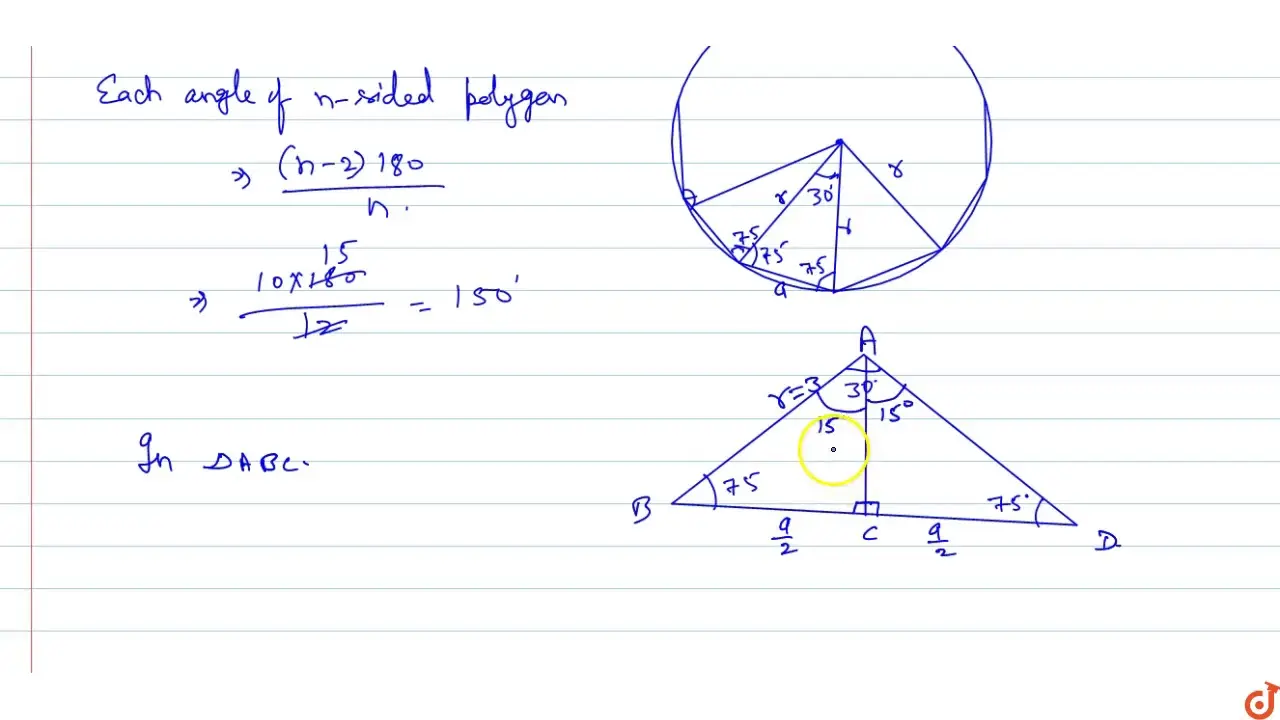 Each angle of n-sided polygon
⇒ (n-2) 180
n.
15
⇒ 10×180
12
= 150°
In ΔABC.
r
r
30°
r
75
75
75
a
A
r=3
30°
15
15°
B
75
75°
a/2
C
a/2
D